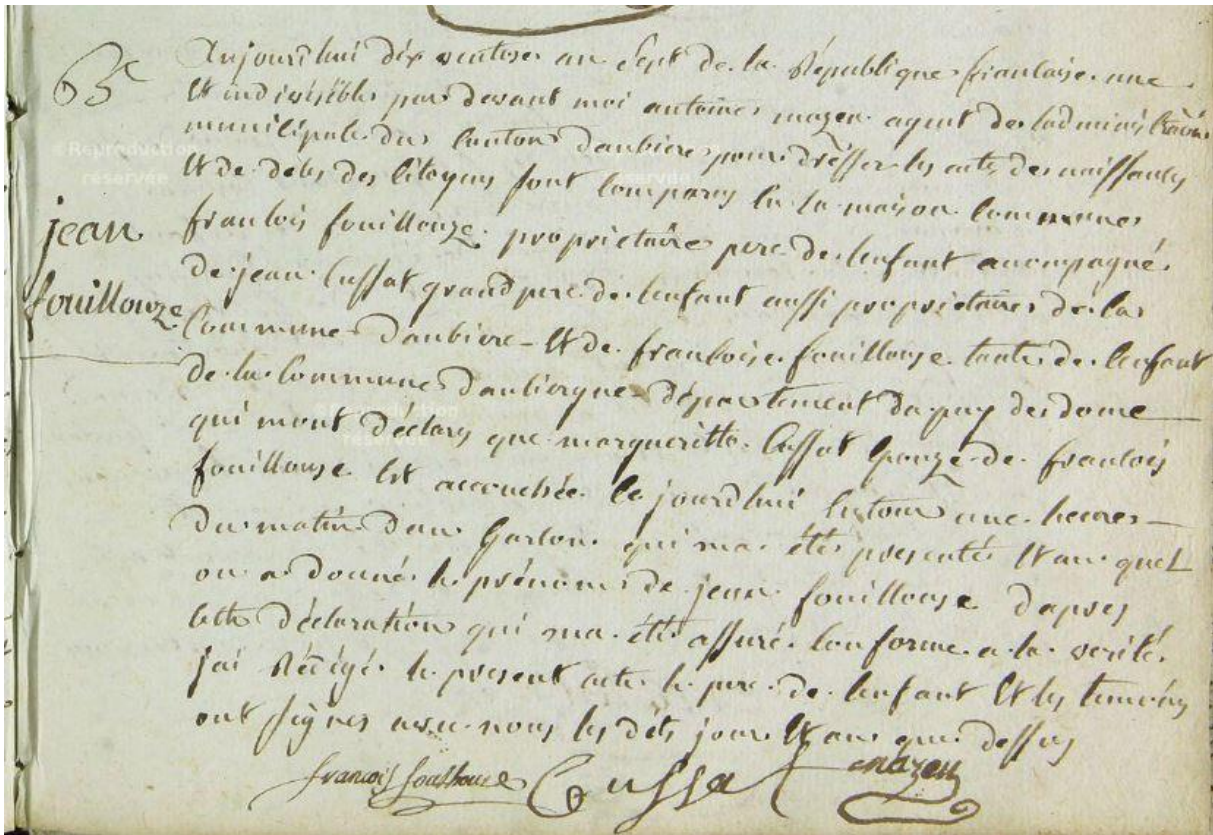 65e
jean
fouillouze
Aujourd'hui dix ventose an Sept de la République francaise une
Et indivisible par devant moi antoine mazen agent de ladminis tration
municipale du Canton daubiere pour drésser les actes de naissances
Et de décès des Citoyens sont comparus en la maison Commune
francois fouillouze propriétaire pere de lenfant acompagné
de jean Cussat grand pere de lenfant aussi propriétaire de la
Commune daubiere - Et de francoise fouillouse tante de lenfant
de la Commune daubiergne département du puy de dome
qui mont déclaré que margueritte Cussat Epouze de francois
fouillouse Est accouchée Ce jourdhui Entour une heures
du matin dun Garcon qui ma été presenté Et au quel
on a donné le prénom de jean fouillouse dapres
Cette déclaration qui ma été assuré Conforme a la verité
jai Rédigé le present acte le pere de lenfant Et les temoins
ont signés avec nous les dits jour Et an que dessus
francois fouilhouze Cussat mazen
©Reproduction
réservée